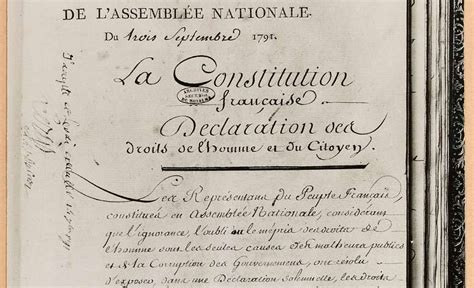 DE L'ASSEMBLÉE NATIONALE.
Du trois Septembre 1791.
La Constitution
française
Déclaration des
droits de l'homme et du Citoyen.
Les Représentans du Peuple Français,
constitués en Assemblée Nationale, considérant
que l'ignorance, l'oubli ou le mépris des droits de
l'homme sont les seules causes des malheurs publics
et de la Corruption des Gouvernemens, ont résolu
d'exposer, dans une Déclaration solemnelle, les droits